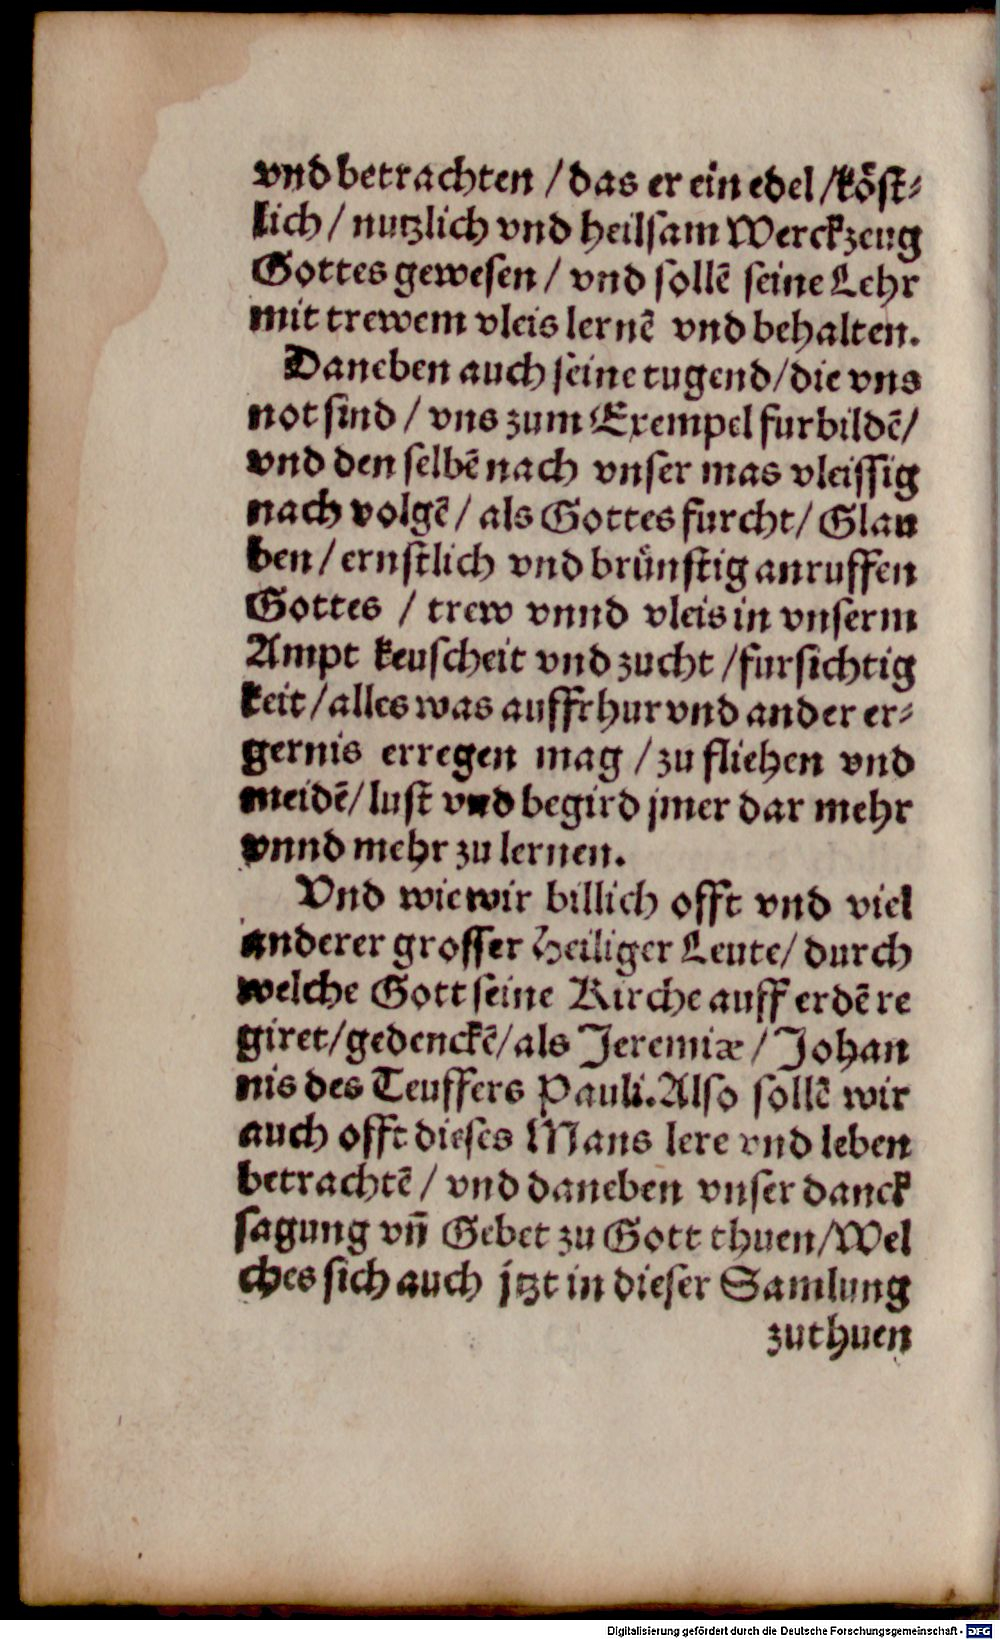 vnd betrachten / das er ein edel / köst⸗
lich / nutzlich vnd heilsam Werckzeug
Gottes gewesen / vnd sollē seine Lehr
mit trewem vleis lernē vnd behalten.
Daneben auch seine tugend / die vns
not sind / vns zum Exempel furbildē /
vnd den selbē nach vnser mas vleissig
nach volgē / als Gottes furcht / Glau
ben / ernstlich vnd brünstig anruffen
Gottes / trew vnnd vleis in vnserm
Ampt keuscheit vnd zucht / fursichtig
keit / alles was auffrhur vnd ander er⸗
gernis erregen mag / zu fliehen vnd
meidē / lust vnd begird jmer dar mehr
vnnd mehr zu lernen.
Vnd wie wir billich offt vnd viel
anderer grosser Heiliger Leute / durch
welche Gott seine Kirche auff erdē re
giret / gedenckē / als Jeremiæ / Johan
nis des Teuffers Pauli. Also sollē wir
auch offt dieses Mans lere vnd leben
betrachtē / vnd daneben vnser danck
sagung vn̄ Gebet zu Gott thuen / Wel
ches sich auch jtzt in dieser Samlung
zuthuen
Digitalisierung gefördert durch die Deutsche Forschungsgemeinschaft - DFG